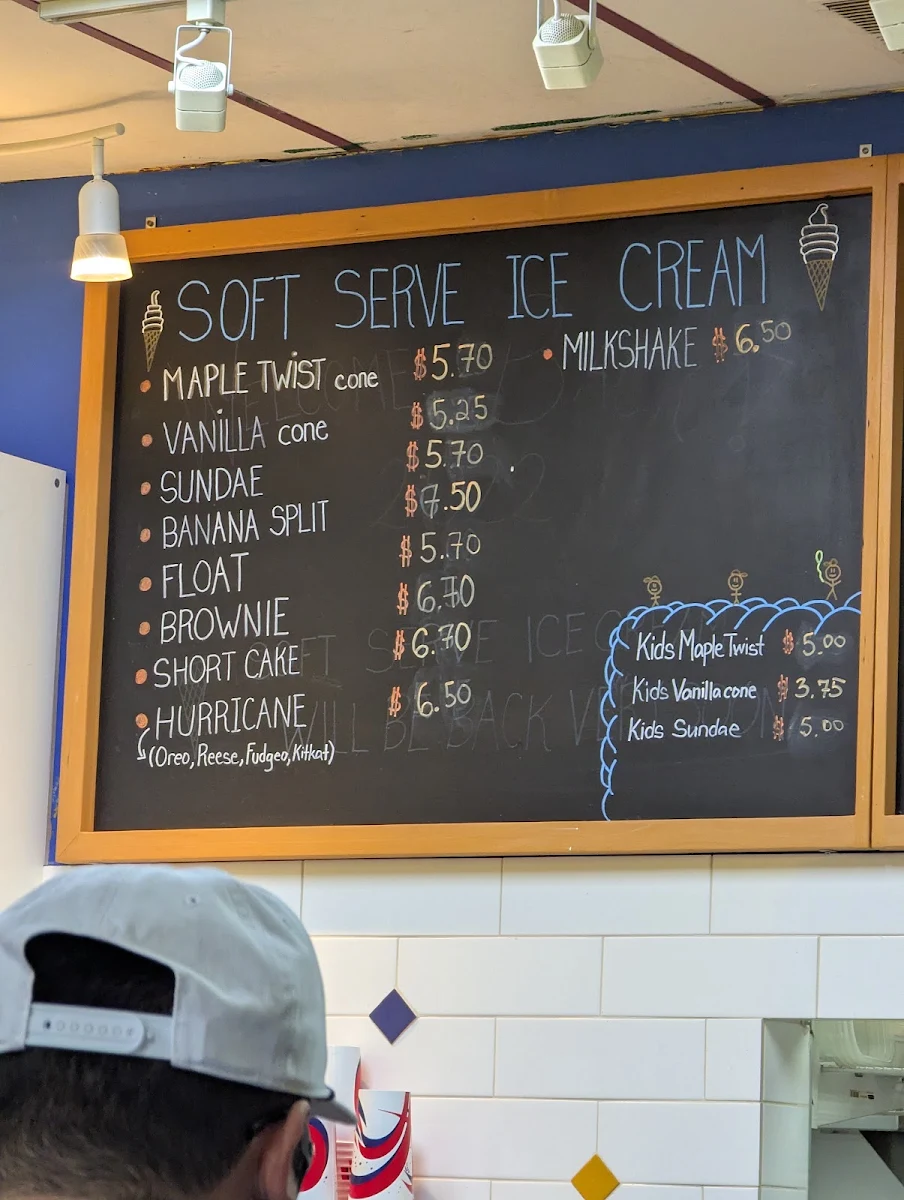 SOFT SERVE ICE CREAM
MAPLE TWiST cone $5.70
VANiLLA cone $5.25
SUNDAE $5.70
BANANA SPLIT $7.50
FLOAT $5.70
BROWNIE $6.70
SHORT CAKE $6.70
HURRICANE $6.50
(Oreo, Reese, Fudgeo, Kitkat)
MILKSHAKE $6.50
Kids Maple Twist $5.00
Kids Vanilla cone $3.75
Kids Sundae $5.00
SOFT SERVE ICE
WILL BE BACK